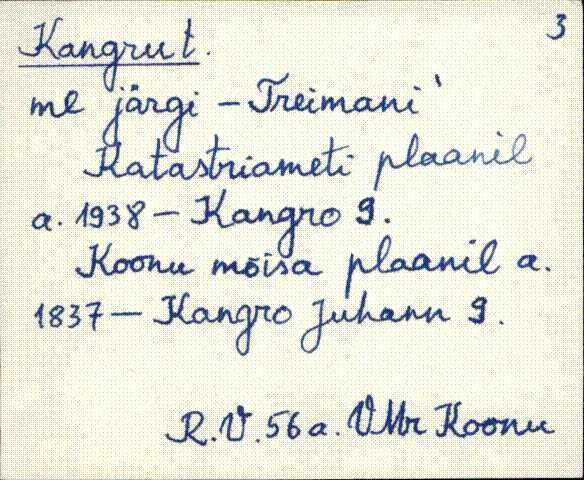 3
Kangru t.
me järgi – Treimani'
Katastriameti plaanil
a. 1938 – Kangro 9.
Koonu mõisa plaanil a.
1837 – Kangro Juhann 9.
R.V. 56 a. VMr Koonu